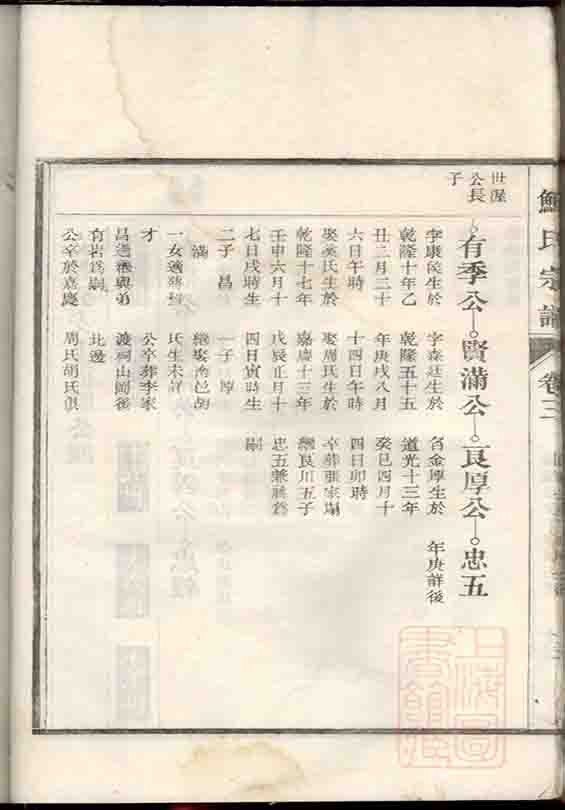 氏宗譜
卷三
世渥
公長
子
有季公
字康侯生於
乾隆十年乙
丑三月二十
六日午時
娶吳氏生於
乾隆十七年
壬申六月十
七日戌時生
二子 昌
滿
一女適蔣
才
昌過繼與弟
有岩為嗣
公卒於嘉慶
賢滿公
字森廷生於
乾隆五十五
年庚戌八月
十四日午時
娶周氏生於
嘉慶十三年
戊辰正月十
四日寅時生
一子 厚
繼娶邑胡
氏生未詳
公卒葬李家
渡祠山岡後
北邊
周氏胡氏俱
良厚公
名金厚生於
道光十三年
癸巳四月十
四日卯時
卒葬張家
繼良川五子
忠五兼祧為
嗣
忠五
年庚詳後
上海圖
書館藏